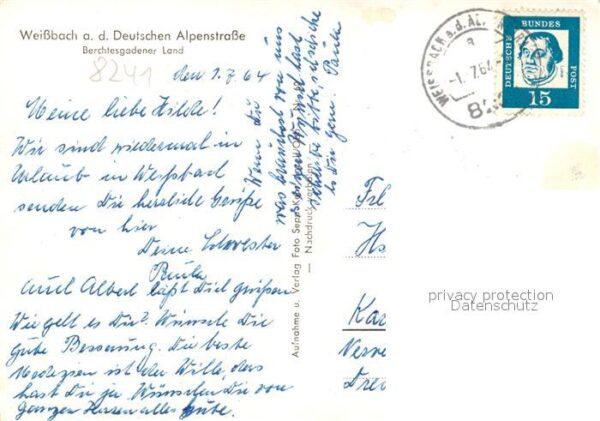 Weißbach a. d. Deutschen Alpenstraße
Berchtesgadener Land
8241
den 1.7.64
Meine liebe Hilde!
Wir sind wiedermal in
Urlaub in Weissbach
senden Die herzliche Grüße
von hier
Deine Schwester
Paula
Auch Albert läßt Dich grüßen
Wie geht es Dir? Wünsche Die
gute Besserung. Die beste
Medezien ist der Wille, das
hast Du ja. Wünschen Die von
ganzen Herzen alles Gute.
Wenn Du
was brauchst von uns
schreibe bitte, schicke
es Dir gern. Paula
Aufnahme u. Verlag Foto Sepp
Nachdruck
WEISSBACH a. d. AL
a
-1.7.64
82
DEUTSCHE
BUNDES
POST
15
Frl
Hs
Kar
Nerve
Dre
privacy protection
Datenschutz